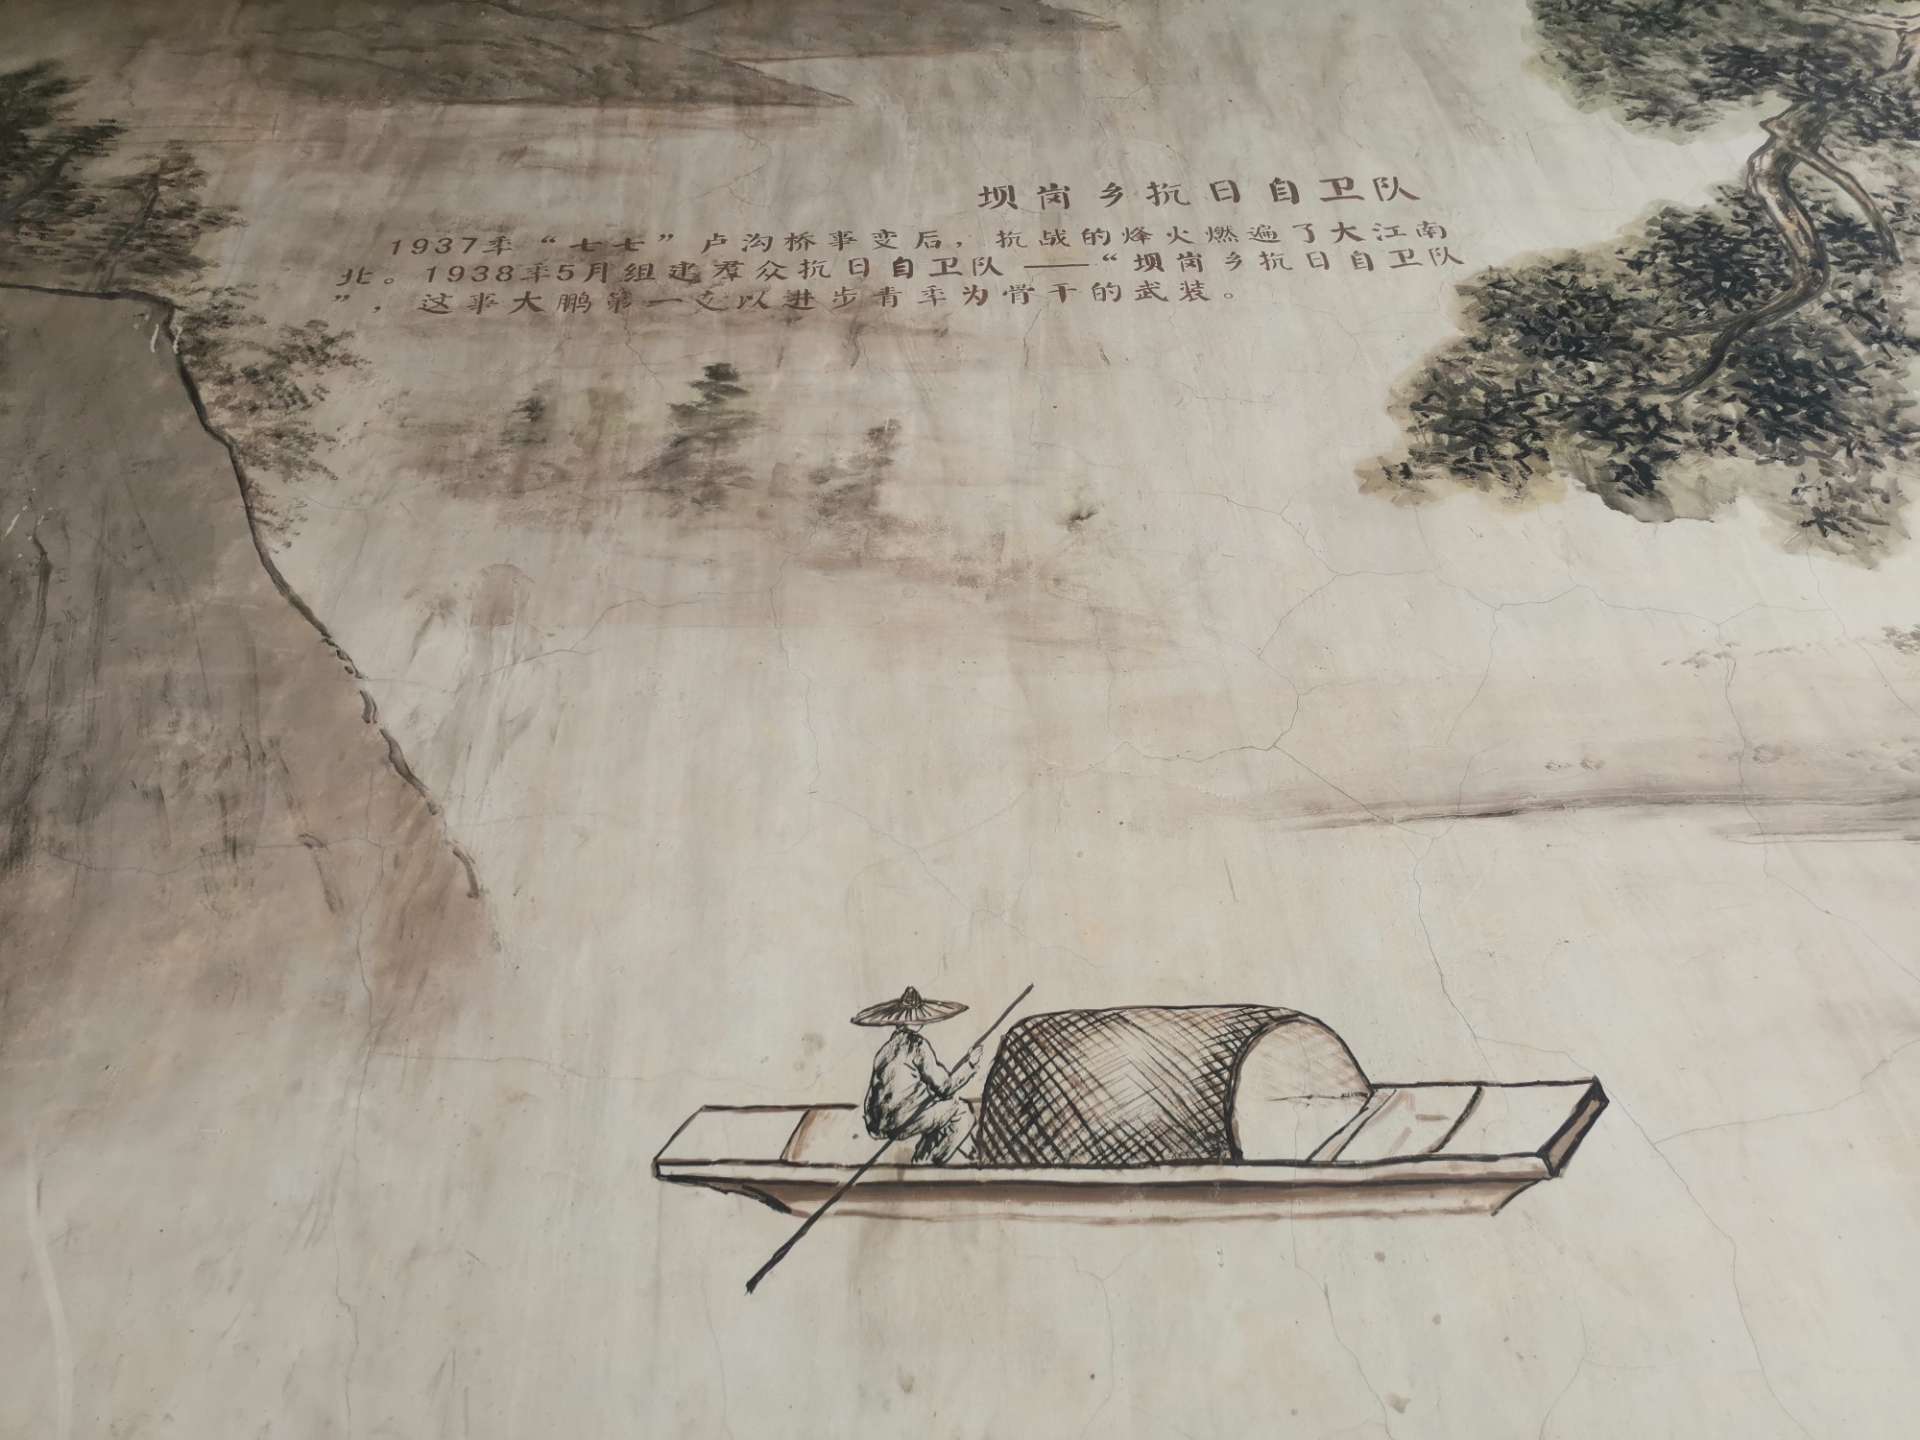 坝岗乡抗日自卫队
1937年“七七”卢沟桥事变后，抗战的烽火燃遍了大江南
北。1938年5月组建群众抗日自卫队——“坝岗乡抗日自卫队
”，这事大鹏第一支以进步青年为骨干的武装。